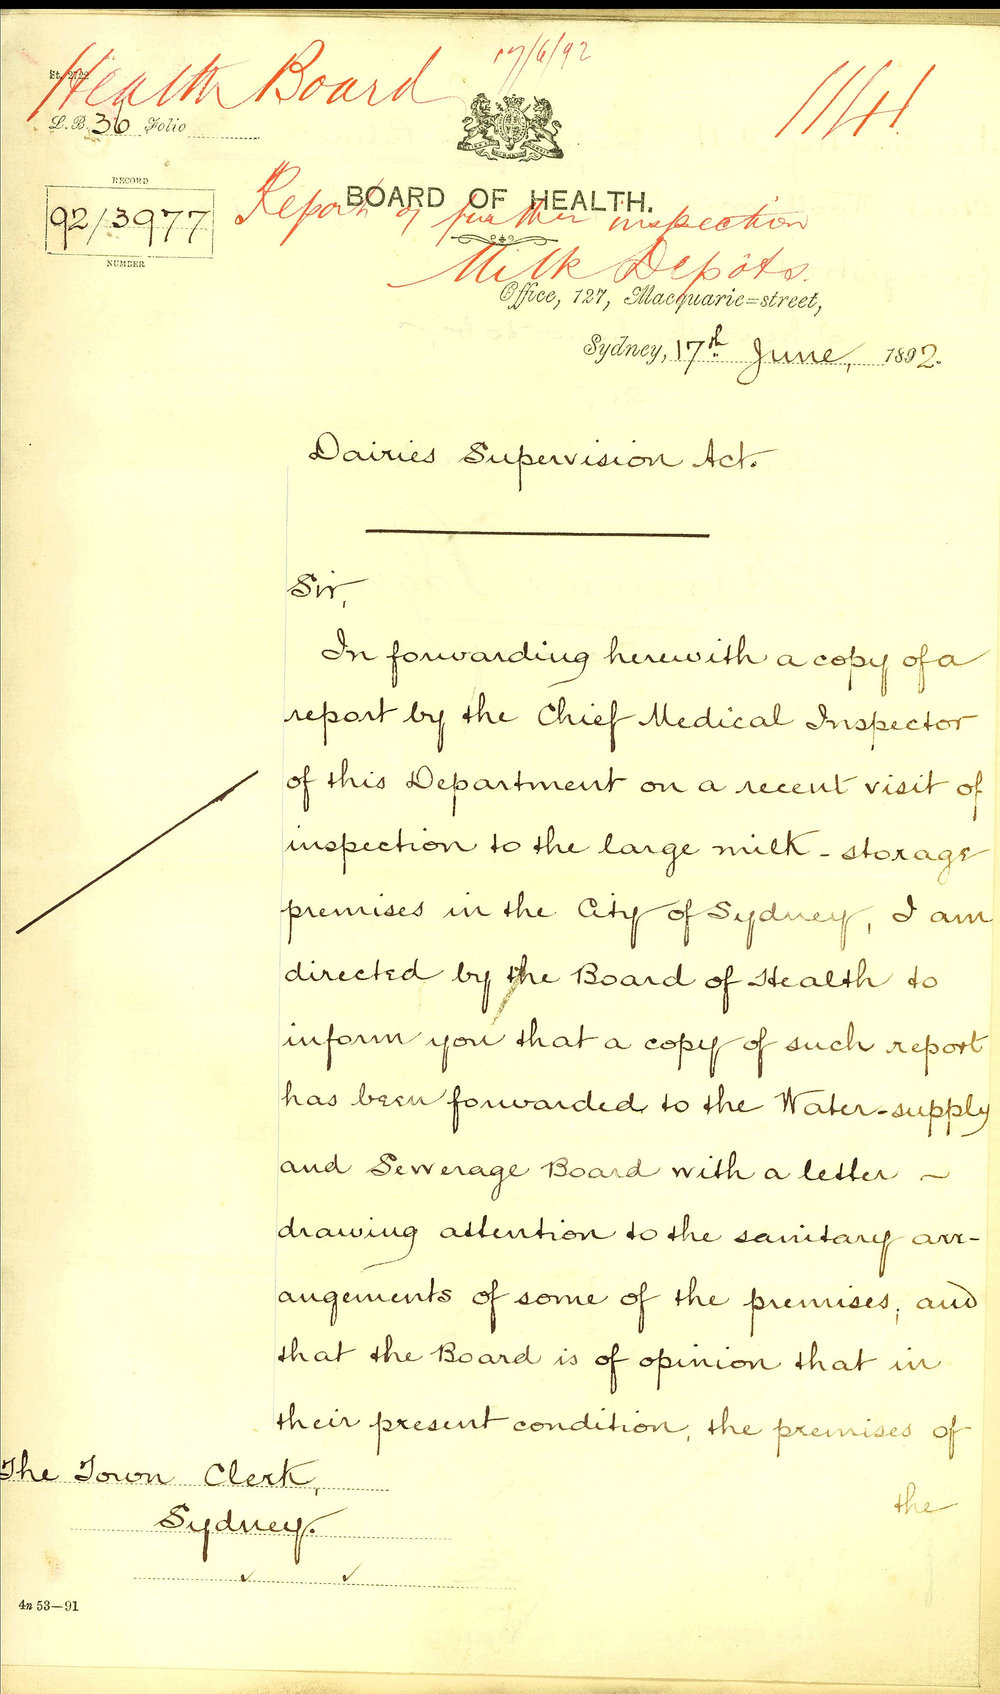 17/6/92
Health Board
1141
St. 2722
L. B. 36 Folio
RECORD
92/3977
NUMBER
BOARD OF HEALTH.
Report of further inspection
Milk Depôts.
Office, 127, Macquarie=street,
Sydney, 17th June, 1892.
Dairies Supervision Act.
Sir,
In forwarding herewith a copy of a
report by the Chief Medical Inspector
of this Department on a recent visit of
inspection to the large milk-storage
premises in the City of Sydney, I am
directed by the Board of Health to
inform you that a copy of such report
has been forwarded to the Water-supply
and Sewerage Board with a letter ~
drawing attention to the sanitary arr-
angements of some of the premises, and
that the Board is of opinion that in
their present condition, the premises of
the
The Town Clerk,
Sydney.
4n 53—91